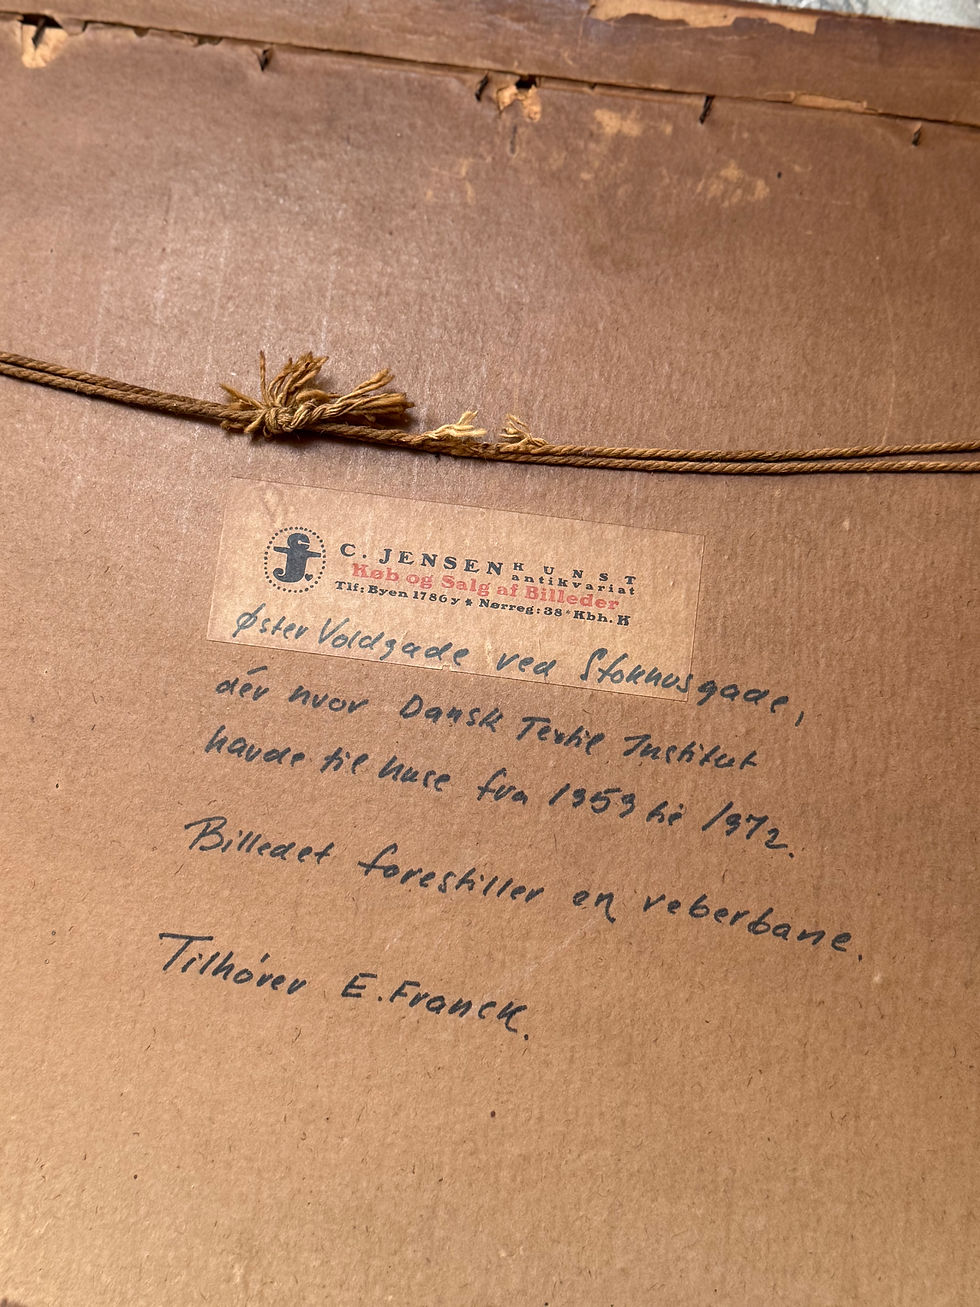 C. JENSEN KUNST
antikvariat
Køb og Salg af Billeder
Tlf: Byen 1786 y ★ Nørreg: 38 * Kbh. K
Øster Voldgade ved Stokhusgade,
dér hvor Dansk Textil Institut
havde til huse fra 1959 til 1972.
Billedet forestiller en reberbane.
Tilhører E. Franck.